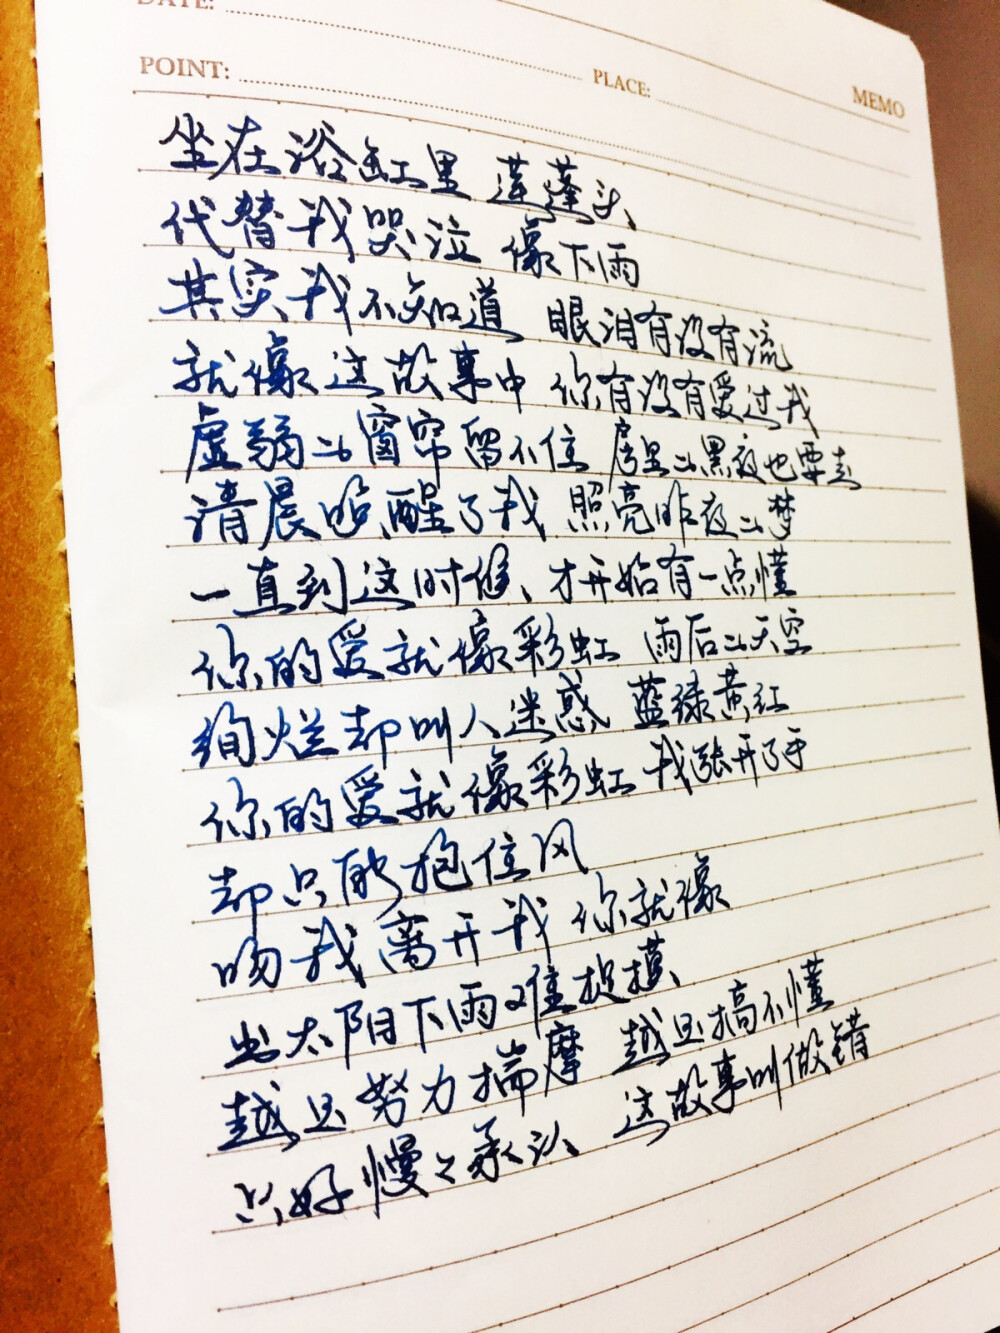 DATE:
POINT: PLACE: MEMO
坐在浴缸里 莲蓬头
代替我哭泣 像下雨
其实我不知道 眼泪有没有流
就像这故事中 你有没有爱过我
虚弱的窗帘留不住 房里的黑夜也要走
清晨吵醒了我 照亮昨夜的梦
一直到这时候、才开始有一点懂
你的爱就像彩虹 雨后的天空
绚烂却叫人迷惑 蓝绿黄红
你的爱就像彩虹 我张开了手
却只能抱住风
吻我离开我 你就像
出太阳下雨难捉摸
越是努力揣摩 越是搞不懂
只好慢慢承认 这故事叫做错